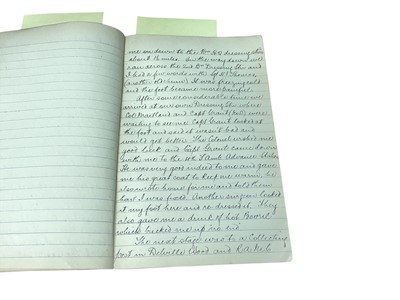 me on down to the Bn HQ dressing Stn
about 1½ miles. On the way down we
ran across the 2nd Bn Dressing Stn and
I had a few words with
. It was freezing cold
and the foot became more painful.
After some considerable time we
arrived at our own Dressing Stn where
Col Maitland and Capt Grant were
waiting to see me. Capt Grant looked at
the foot and said it wasn't bad and
would get better. The Colonel wished me
good luck and Capt Grant came down
with me to the Advance Station
He was very good indeed to me and gave
me his great coat to keep me warm. he
also wrote home for me and told them
how I was fixed. Another surgeon looked
at my foot here and re-dressed it. They
also gave me a drink of hot Bovril
which bucked me up no end
The next stage was to a Collecting
post in Delville Wood and R.A.